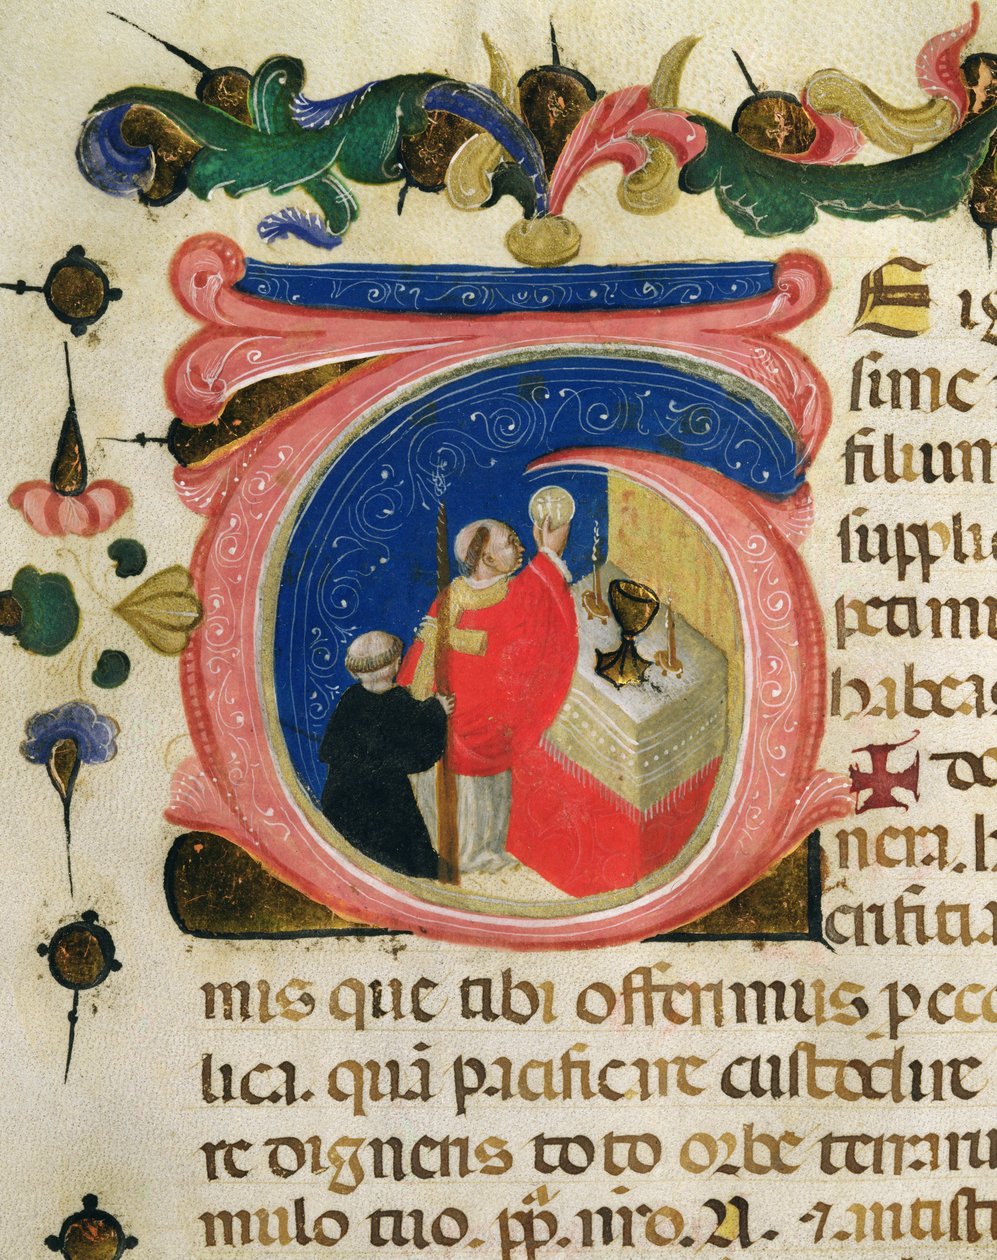 T E ig
sime
filium
supplic
petimu
habeas
✠ do
nera. h
crifitia
mis que tibi offerimus p ecc
lica. quā pacificare custodire
re digneris toto orbe terraru
mulo tuo. pp̄. nr̄o. N. ⁊ antist